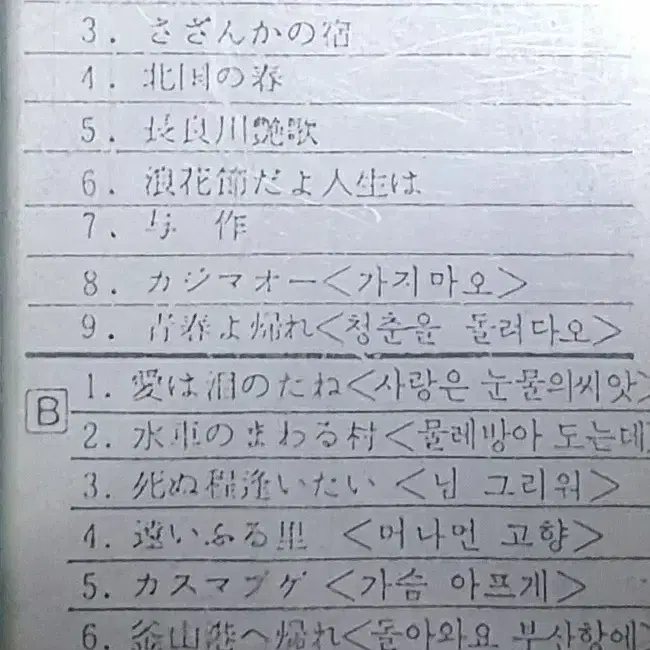 3. さざんかの宿
4. 北国の春
5. 長良川艶歌
6. 浪花節だよ人生は
7. 与 作
8. カジマオー<가지마오>
9. 青春よ帰れ<청춘을 돌려다오>
B
1. 愛は泪のたね<사랑은 눈물의씨앗>
2. 水車のまわる村<물레방아 도는데
3. 死ぬ程逢いたい <님 그리워>
4. 遠いふる里 <머나먼 고향>
5. カスマプゲ <가슴 아프게>
6. 釜山港へ帰れ<돌아와요 부산항에>